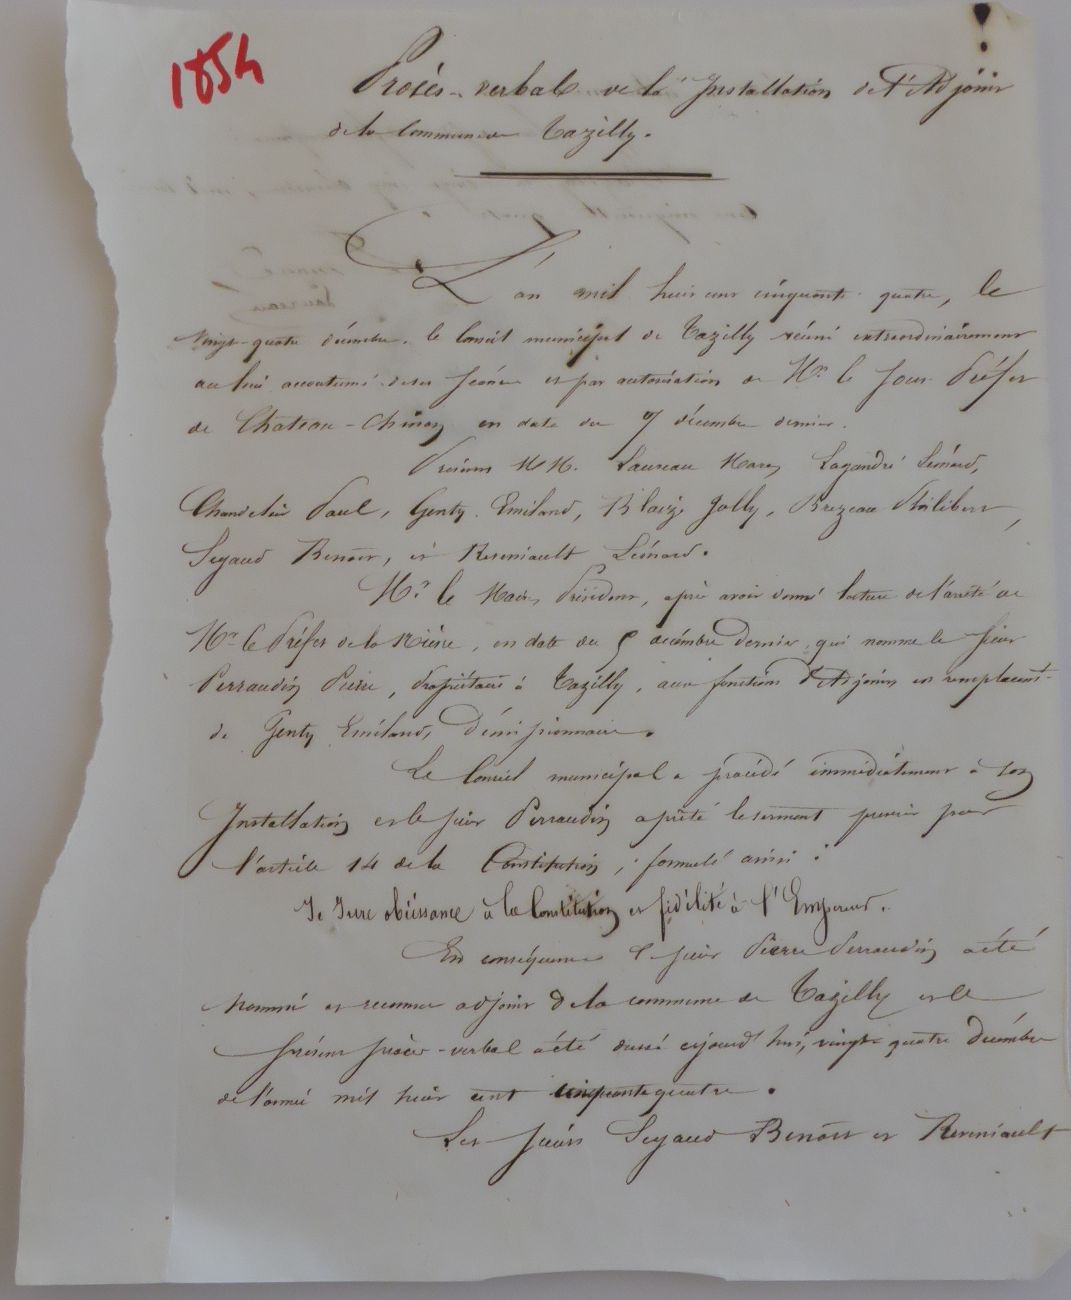 1854
Procès-verbal de la Installation de l'Adjoint
de la Commune de Tazilly.
L'an mil huit cent cinquante quatre, le
vingt-quatre décembre. le Conseil municipal de Tazilly réuni extraordinairement
au lieu accoutumé de ses séances et par autorisation de Mr. le Sous Préfet
de Chateau-Chinon en date du 7 décembre dernier.
Présens MM. Laureau Maire, Lagandré Léonard,
Chandelier Paul, Genty Emiland, Blaize Jolly, Brezeau Philibert,
Seyaud Benoit, et Reveniault Léonard.
Mr. le Maire, Président, après avoir donné lecture de l'arrêté de
Mr. le Préfet de la Nièvre, en date du 5 décembre dernier, qui nomme le sieur
Perraudin Pierre, Propriétaire à Tazilly, aux fonctions d'Adjoint en remplacent.
de Genty Emiland, Démissionnaire.
Le Conseil municipal a procédé immédiatement à son
Installation et le sieur Perraudin a prêté le serment prescrit par
l'article 14 de la Constitution, formulé ainsi :
Je Jure obéissance à la Constitution et fidélité à l'Empereur.
En conséquence le sieur Pierre Perraudin a été
nommé et reconnu adjoint de la commune de Tazilly et le
présent procès-verbal a été dressé cejourd'hui, vingt quatre Décembre
de l'année mil huit cent cinquante quatre.
Les sieurs Seyaud Benoit et Reveniault